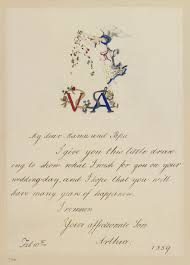 V A
My dear Mama and Papa
I give you this little draw-
ing to show what I wish for you on your
wedding day, and I hope that you will
have many years of happiness.
I remain
Your affectionate Son
Feb 10th Arthur 1859